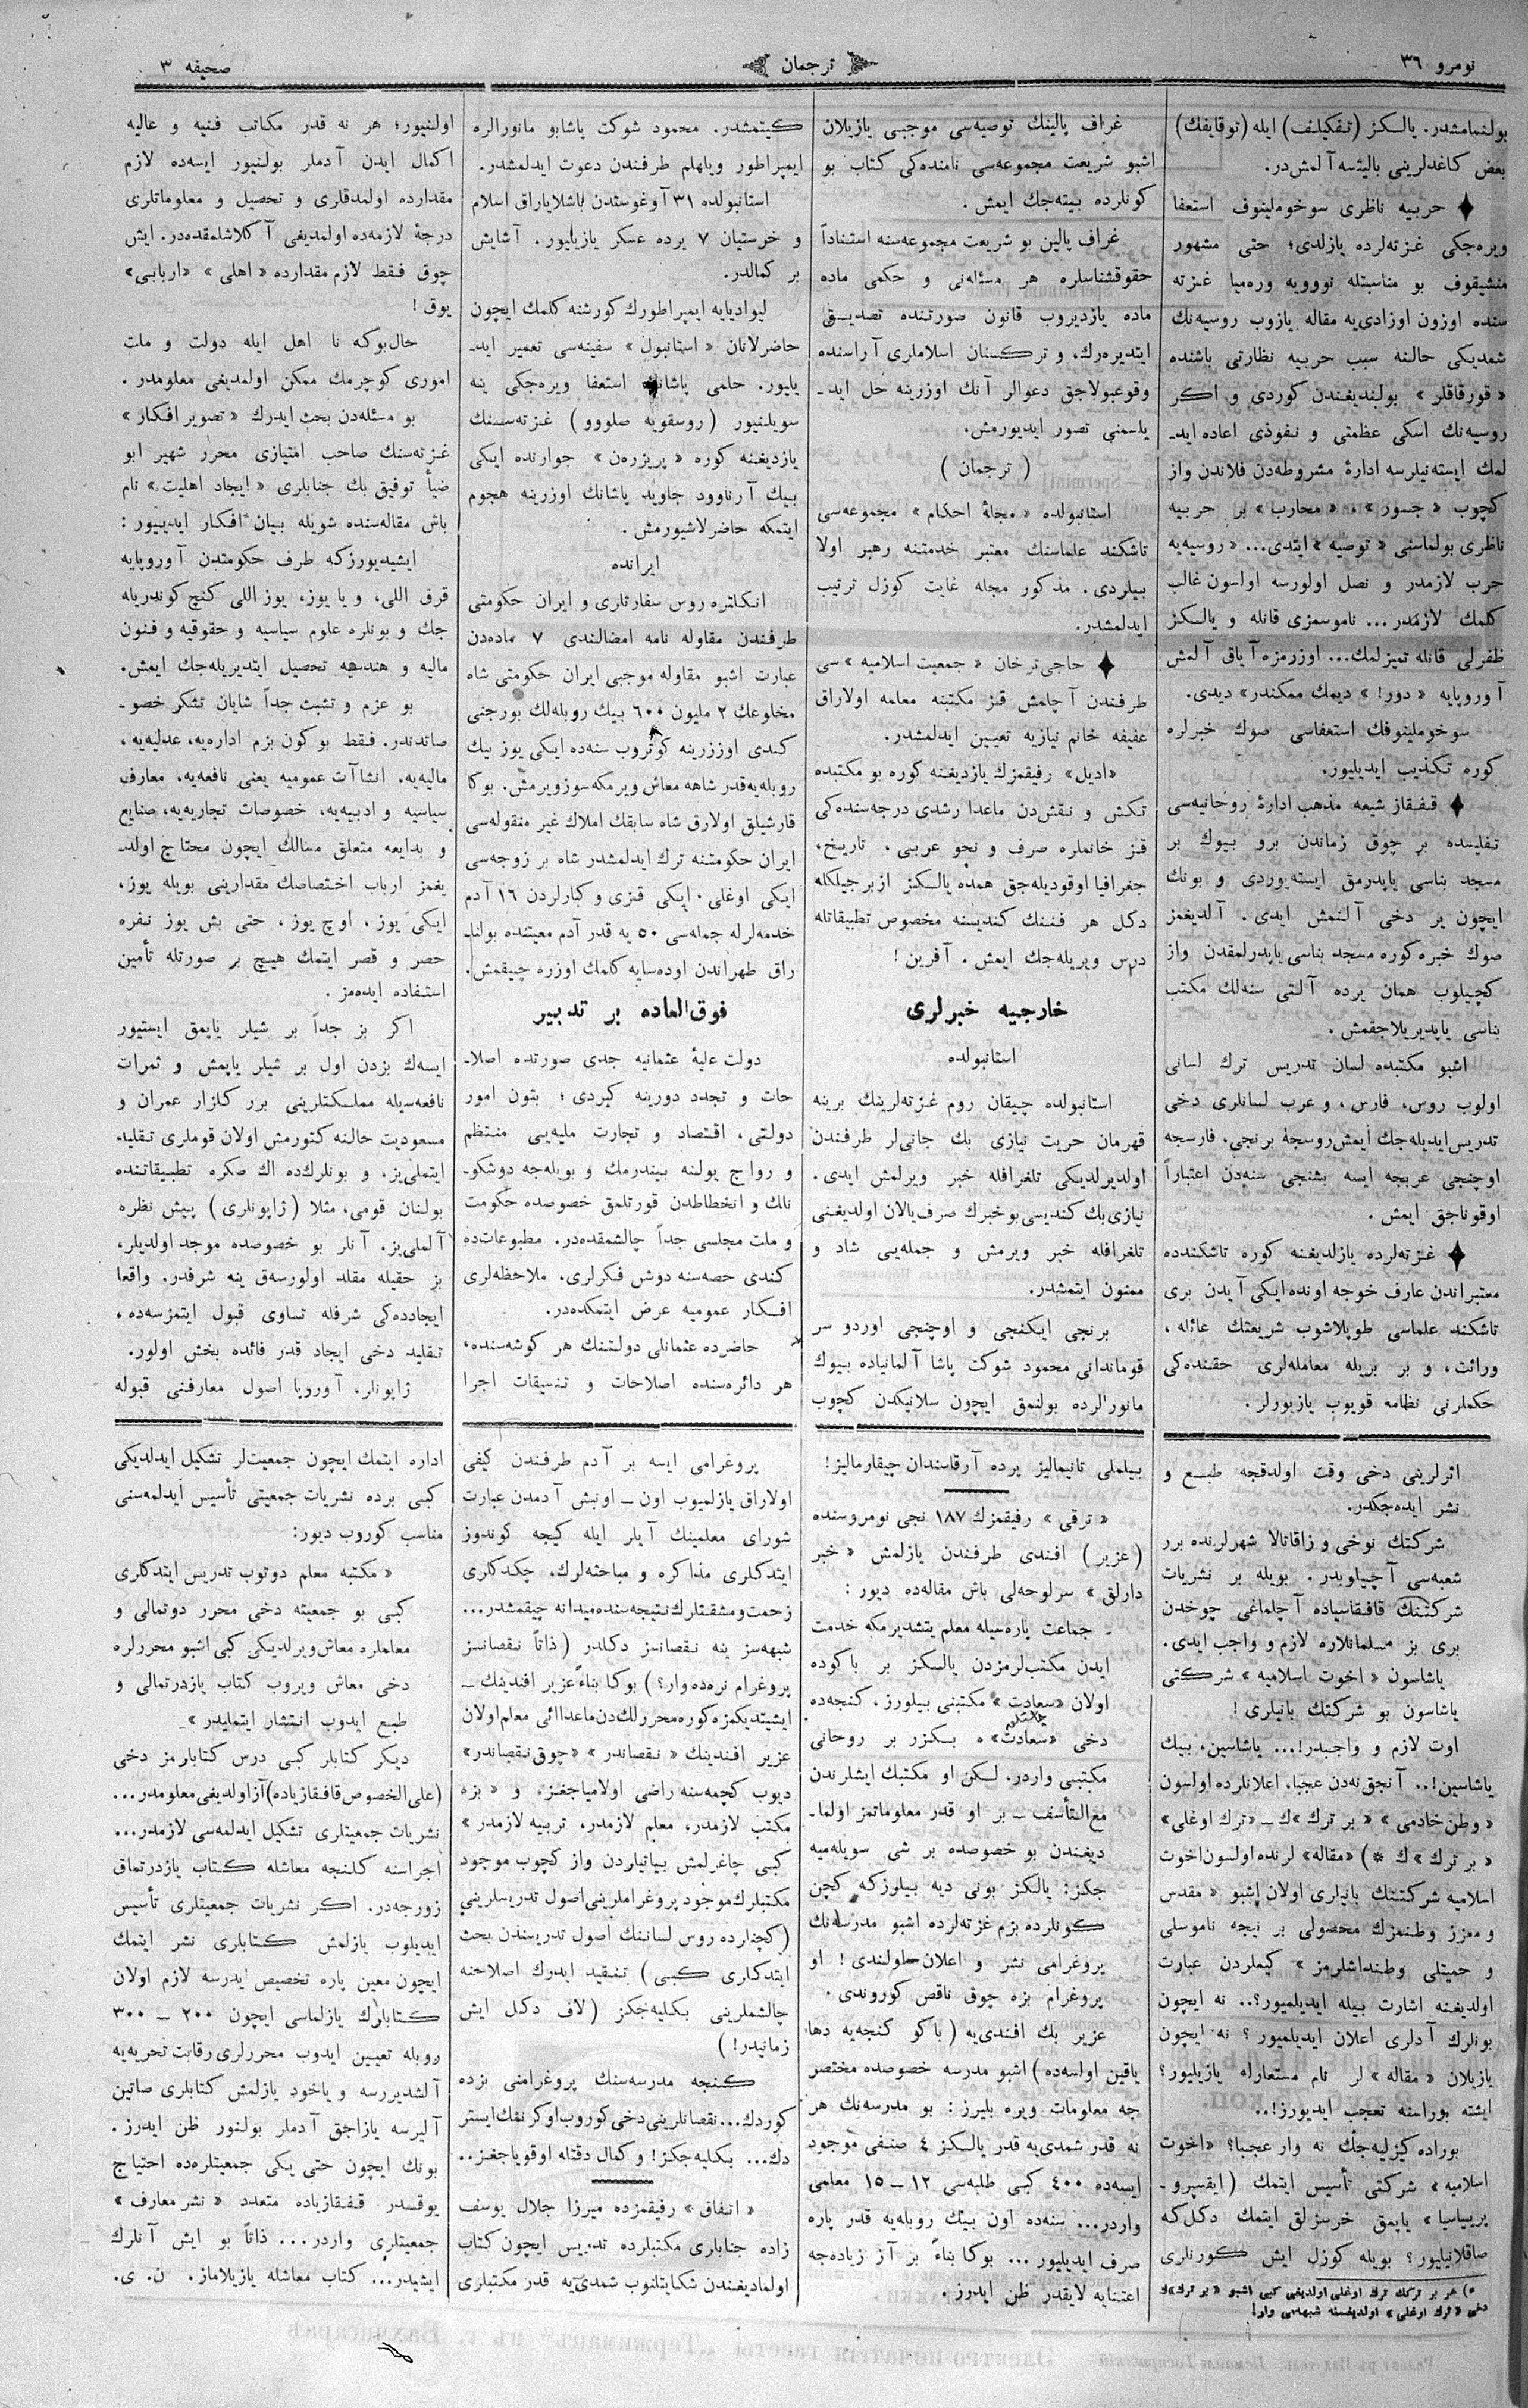 نومرو ٣٦
ترجمان
صحيفه ٣
بولنمامشدر. يالكز (تفكيلف) ايله (توقايفك)
بعض كاغدلرينى باليتسه آلمش‌در.
حربيه ناظرى سوخوملينوف استعفا
ويره‌جكى غزته‌لرده يازلدى؛ حتى مشهور
منشيقوف بو مناسبتله نووويه وره‌ميا غزته
سنده اوزون اوزادىيه مقاله يازوب روسيه‌نك
شمديكى حالنه سبب حربيه نظارتى باشنده
« قورقاقلر » بولنديغندن كوردى و اكر
روسيه‌نك اسكى عظمتى و نفوذى اعاده ايد-
لمك ايسته‌نيلرسه ادارهٔ مشروطه‌دن فلاندن واز
كچوب « جسور »، « محارب » بر حربيه
ناظرى بولماسنى « توصيه » ايتدى... « روسيه‌يه
حرب لازمدر و نصل اولورسه اولسون غالب
كلمك لازمدر... ناموسمزى قانله و يالكز
ظفرلى قانله تميزلمك... اوزرمزه آياق آلمش
آوروپايه « دور! » ديمك ممكندر» ديدى.
سوخوملينوفك استعفاسى صوك خبرلره
كوره تكذيب ايديليور.
قفقاز شيعه مذهب ادارهٔ روحانيه‌سى
تفليسده بر چوق زماندن برو بيوك بر
مسجد بناسى ياپدرمق ايسته‌يوردى و بونك
ايچون ير دخى آلنمش ايدى. آلديغمز
صوك خبره كوره مسجد بناسى ياپدرلمقدن واز
كچيلوب همان يرده آلتى سنه‌لك مكتب
بناسى ياپديريلاجقمش.
اشبو مكتبده لسان تدريس ترك لسانى
اولوب روس، فارس، و عرب لسانلرى دخى
تدريس ايديله‌جك ايمش روسجهٔ برنجى، فارسجه
اوچنجى عربجه ايسه بشنجى سنه‌دن اعتباراً
اوقوناجق ايمش.
غزته‌لرده يازلديغنه كوره تاشكندده
معتبراندن عارف خوجه اونده ايكى آيدن برى
تاشكند علماسى طوپلاشوب شريعتك عائله،
وراثت، و بر بريله معامله‌لرى حقنده‌كى
حكملرنى نظامه قويوب يازيورلر.
غراف پالينك توصيه‌سى موجبى يازيلان
اشبو شريعت مجموعه‌سى نامنده‌كى كتاب بو
كونلرده بيته‌جك ايمش.
غراف پالين بو شريعت مجموعه‌سنه استناداً
حقوقشناسلره هر مسئله‌نى و حكمى ماده
ماده يازديروب قانون صورتنده تصديق
ايتديره‌رك، و تركستان اسلاملرى آراسنده
وقوعبولاجق دعوالر آنك اوزرينه حل ايد-
ياسمنى تصور ايديورمش.
( ترجمان )
استانبولده « مجلهٔ احكام » مجموعه‌سى
تاشكند علماسنك معتبر خدمتنه رهبر اولا
بيلردى. مذكور مجله غايت كوزل ترتيب
ايدلمشدر.
حاجى‌ترخان « جمعيت اسلاميه » سى
طرفندن آچلمش قز مكتبنه معلمه اولاراق
عفيفه خانم نيازيه تعيين ايدلمشدر.
«اديل» رفيقمزك يازديغنه كوره بو مكتبده
تكش و نقش‌دن ماعدا رشدى درجه‌سنده‌كى
قز خانملره صرف و نحو عربى، تاريخ،
جغرافيا اوقوديله‌جق همده يالكز ازبرجيلكله
دكل هر فننك كنديسنه مخصوص تطبيقاتله
درس ويريله‌جك ايمش. آفرين!
خارجيه خبرلرى
استانبولده
استانبولده چيقان روم غزته‌لرينك برينه
قهرمان حريت نيازى بك جانى‌لر طرفندن
اولديرلديكى تلغرافله خبر ويرلمش ايدى.
نيازى‌بك كنديسى بو خبرك صرف يالان اولديغنى
تلغرافله خبر ويرمش و جمله‌يى شاد و
ممنون ايتمشدر.
برنجى ايكنجى و اوچنجى اوردو سر
قوماندانى محمود شوكت پاشا آلمانياده بيوك
مانورالرده بولنمق ايچون سلانيكدن كچوب
كيتمشدر. محمود شوكت پاشايو مانورالره
ايمپراطور ويلهلم طرفندن دعوت ايدلمشدر.
استانبولده ٣١ آوغوستدن باشلاياراق اسلام
و خرستيان ٧ يرده عسكر يازيليور. آسايش
بر كمالدر.
ليواديايه ايمپراطورك كورشنه كلمك ايچون
حاضرلانان « استانبول » سفينه‌سى تعمير ايد-
يليور. حلمى پاشانك استعفا ويره‌جكى ينه
سويلنيور (روسقويه صلووو) غزته‌سنك
يازديغنه كوره « پريزره‌ن » جوارنده ايكى
بيك آرناوود جاويد پاشانك اوزرينه هجوم
ايتمكه حاضرلاشيورمش.
ايرانده
انكلتره روس سفارتلرى و ايران حكومتى
طرفندن مقاوله نامه امضالندى ٧ ماده‌دن
عبارت اشبو مقاوله موجبى ايران حكومتى شاه
مخلوعك ٢ مليون ٦٠٠ بيك روبله‌لك بورجنى
كندى اوزرينه كوتروب سنه‌ده ايكى يوز بيك
روبله‌يه قدر شاهه معاش ويرمكه سوز ويرمش. بوكا
قارشيلق اولارق شاه سابقك املاك غير منقوله‌سى
ايران حكومتنه ترك ايدلمشدر شاه بر زوجه‌سى
ايكى اوغلى، ايكى قزى و كبارلردن ١٦ آدم
خدمه‌لرله جمله‌سى ٥٠ يه قدر آدم معيتنده بولنا-
راق طهراندن اوده‌سايه كلمك اوزره چيقمش.
فوق‌العاده بر تدبير
دولت عليهٔ عثمانيه جدى صورتده اصلا-
حات و تجدد دورينه كيردى؛ بتون امور
دولتى، اقتصاد و تجارت مليه‌يى منتظم
و رواج يولنه بيندرمك و بويله‌جه دوشكو-
نلك و انحطاطدن قورتلمق خصوصده حكومت
و ملت مجلسى جداً چالشمقده‌در. مطبوعات‌ده
كندى حصه‌سنه دوشن فكرلرى، ملاحظه‌لرى
افكار عموميه عرض ايتمكده‌در.
حاضرده عثمانلى دولتنك هر كوشه‌سنده،
هر دائره‌سنده اصلاحات و تنسيقات اجرا
اولنيور؛ هر نه قدر مكاتب فنيه و عاليه
اكمال ايدن آدملر بولنيور ايسه‌ده لازم
مقدارده اولمدقلرى و تحصيل و معلوماتلرى
درجهٔ لازمه‌ده اولمديغى آكلاشلمقده‌در. ايش
چوق فقط لازم مقدارده « اهلى » «اربابى»
يوق!
حال‌بوكه نا اهل ايله دولت و ملت
امورى كوچرمك ممكن اولمديغى معلومدر.
بو مسئله‌دن بحث ايدرك « تصوير افكار »
غزته‌سنك صاحب امتيازى محرر شهير ابو
ضيأ توفيق بك جنابلرى « ايجاد اهليت » نام
باش مقاله‌سنده شويله بيان افكار ايدييور:
ايشيديورزكه طرف حكومتدن آوروپايه
قرق اللى، و يا يوز، يوز اللى كنج كوندريله
جك و بونلره علوم سياسيه و حقوقيه و فنون
ماليه و هندسيه تحصيل ايتديريله‌جك ايمش.
بو عزم و تشبث جداً شايان تشكر خصو-
صاتدندر. فقط بو كون بزم اداره‌يه، عدليه‌يه،
ماليه‌يه، انشاآت عموميه يعنى نافعه‌يه، معارف
سياسيه و ادبيه‌يه، خصوصات تجاريه‌يه، صنايع
و بدايعه متعلق مسالك ايچون محتاج اولد-
يغمز ارباب اختصاصك مقدارينى بويله يوز،
ايكى يوز، اوچ يوز، حتى بش يوز نفره
حصر و قصر ايتمك هيچ بر صورتله تأمين
استفاده ايده‌مز.
اكر بز جداً بر شيلر ياپمق ايستيور
ايسه‌ك بزدن اول بر شيلر ياپمش و ثمرات
نافعه‌سيله مملكتلرينى برر كلزار عمران و
مسعوديت حالنه كتورمش اولان قوملرى تقليد
ايتملى‌يز. و بونلرك‌ده اك صكره تطبيقاتنده
بولنان قومى، مثلا (ژاپونلرى) پيش نظره
آلملى‌يز. آنلر بو خصوصده موجد اولديلر،
بز حقيله مقلد اولورسه‌ق ينه شرفدر. واقعا
ايجادده‌كى شرفله تساوى قبول ايتمزسه‌ده،
تقليد دخى ايجاد قدر فائده بخش اولور.
ژاپونلر، آوروپا اصول معارفنى قبوله
اثرلرينى دخى وقت اولدقجه طبع و
نشر ايده‌جكدر.
شركتك نوخى و زاقاتالا شهرلرنده برر
شعبه‌سى آچيلوبدر. بويله بر نشريات
شركتنك قافقاسياده آچلماغى چوخدن
برى بز مسلمانلاره لازم و واجب ايدى.
ياشاسون « اخوت اسلاميه » شركتى
ياشاسون بو شركتك بانيلرى!
اوت لازم و واجبدر!... ياشاسين، بيك
ياشاسين!.. آنجق نه‌دن عجبا، اعلانلرده اولسون
« وطن خادمى » « بر ترك »ك — «ترك اوغلى»
« بر ترك »ك *) «مقاله» لرنده اولسون اخوت
اسلاميه شركتنك بانيلرى اولان اشبو « مقدس
و معزز وطنمزك محصولى بر نيجه ناموسلى
و حميتلى وطنداشلرمز » كيملردن عبارت
اولديغنه اشارت بيله ايديلميور؟.. نه ايچون
بونلرك آدلرى اعلان ايديلميور؟ نه ايچون
يازيلان « مقاله » لر نام مستعارله يازيليور؟
ايشته بوراسنه تعجب ايديورز!..
بوراده كيزليه‌جك نه وار عجبا؟ «اخوت
اسلاميه » شركتى تأسيس ايتمك (ايقسپرو-
پرياسيا » ياپمق خرسزلق ايتمك دكل‌كه
صاقلانيليور؟ بويله كوزل ايش كورنلرى
*) هر بر تركك ترك اوغلى اولديغى كبى اشبو « بر ترك»ك
دخى «ترك اوغلى» اولديغنه شبهه‌مى وار!
بيلملى تانيماليز پرده آرقاسندان چيقارماليز!
« ترقى » رفيقمزك ١٨٧ نجى نومروسنده
(عزير) افندى طرفندن يازلمش « خبر
دارلق » سرلوحه‌لى باش مقاله‌ده ديور:
- جماعت پاره‌سيله معلم يتشديرمكه خدمت
ايدن مكتب‌لرمزدن يالكز بر باكوده
اولان «سعادت» مكتبنى بيلورز، كنجه‌ده
دخى «سعادت» ه بكزر بر روحانى
مكتبى واردر، لكن او مكتبك ايشلرندن
مع‌التأسف — بر او قدر معلوماتمز اولما-
ديغندن بو خصوصده بر شى سويله‌ميه
جكز: يالكز بونى ديه بيلورزكه كچن
كونلرده بزم غزته‌لرده اشبو مدرسه‌نك
پروغرامى نشر و اعلان اولندى! او
پروغرام بزه چوق ناقص كوروندى.
عزير بك افندى‌يه (باكو كنجه‌يه دها
ياقين اولسه‌ده) اشبو مدرسه خصوصده مختصر
جه معلومات ويره بليرز: بو مدرسه‌نك هر
نه قدر شمدى‌يه قدر يالكز ٤ صنفى موجود
ايسه‌ده ٤٠٠ كبى طلبه‌سى ١٢ — ١٥ معلمى
واردر... سنه‌ده اون بيك روبله‌يه قدر پاره
صرف ايديليور... بوكا بناءً بر آز زياده‌جه
اعتنايه لايقدر ظن ايدرز.
پروغرامى ايسه بر آدم طرفندن كيفى
اولاراق يازلميوب اون — اونبش آدمدن عبارت
شوراى معلمينك آيلر ايله كيجه كوندوز
ايتدكلرى مذاكره و مباحثه‌لرك، چكدكلرى
زحمت و مشقتلرك نتيجه سنده ميدانه چيقمشدر...
شبهه‌سز ينه نقصانسز دكلدر (ذاتاً نقصانسز
پروغرام نره‌ده وار؟) بوكا بناءً عزير افندينك —
ايشيتديكمزه كوره محررلك‌دن ماعدا ائى معلم اولان
عزير افندينك « نقصاندر » «چوق نقصاندر»
ديوب كچمه‌سنه راضى اولامياجغز، و « بزه
مكتب لازمدر، معلم لازمدر، تربيه لازمدر »
كبى چاغرلمش بياتيلردن واز كچوب موجود
مكتبلرك موجود پروغراملرينى اصول تدريسلرينى
(كچنلرده روس لساننك اصول تدريسندن بحث
ايتدكلرى كبى) تنقيد ايدرك اصلاحنه
چالشملرينى بكليه‌جكز (لاف دكل ايش
زمانيدر!)
كنجه مدرسه‌سنك پروغرامنى بزده
كوردك... نقصانلرينى دخى كوروب اوكرنمك ايستر
دك... بكليه‌جكز! و كمال دقتله اوقوياجغز..
« اتفاق » رفيقمزده ميرزا جلال يوسف
زاده جنابلرى مكتبلرده تدريس ايچون كتاب
اولماديغندن شكايتلنوب شمدى‌يه قدر مكتبلرى
اداره ايتمك ايچون جمعيت‌لر تشكيل ايدلديكى
كبى برده نشريات جمعيتى تأسيس ايدلمه‌سنى
مناسب كوروب ديور:
« مكتبه معلم دوتوب تدريس ايتدكلرى
كبى بو جمعيته دخى محرر دوتمالى و
معلملره معاش ويرلديكى كبى اشبو محررلره
دخى معاش ويروب كتاب يازدرتمالى و
طبع ايدوب انتشار ايتمليدر »
ديكر كتابلر كبى درس كتابلرمز دخى
(على الخصوص قافقازياده) آز اولديغى معلومدر...
نشريات جمعيتلرى تشكيل ايدلمه‌سى لازمدر...
اجراسنه كلنجه معاشله كتاب يازدرتماق
زورجه‌در. اكر نشريات جمعيتلرى تأسيس
ايديلوب يازلمش كتابلرى نشر ايتمك
ايچون معين پاره تخصيص ايدرسه لازم اولان
كتابلرك يازلماسى ايچون ٢٠٠ — ٣٠٠
روبله تعيين ايدوب محررلرى رقابت تحريه‌يه
آلشديررسه و ياخود يازلمش كتابلرى صاتين
آليرسه يازاجق آدملر بولنور ظن ايدرز.
بونك ايچون حتى يكى جمعيتلره‌ده احتياج
يوقدر قفقازياده متعدد « نشر معارف »
جمعيتلرى واردر... ذاتاً بو ايش آنلرك
ايشيدر... كتاب معاشله يازيلاماز. ن. ى.